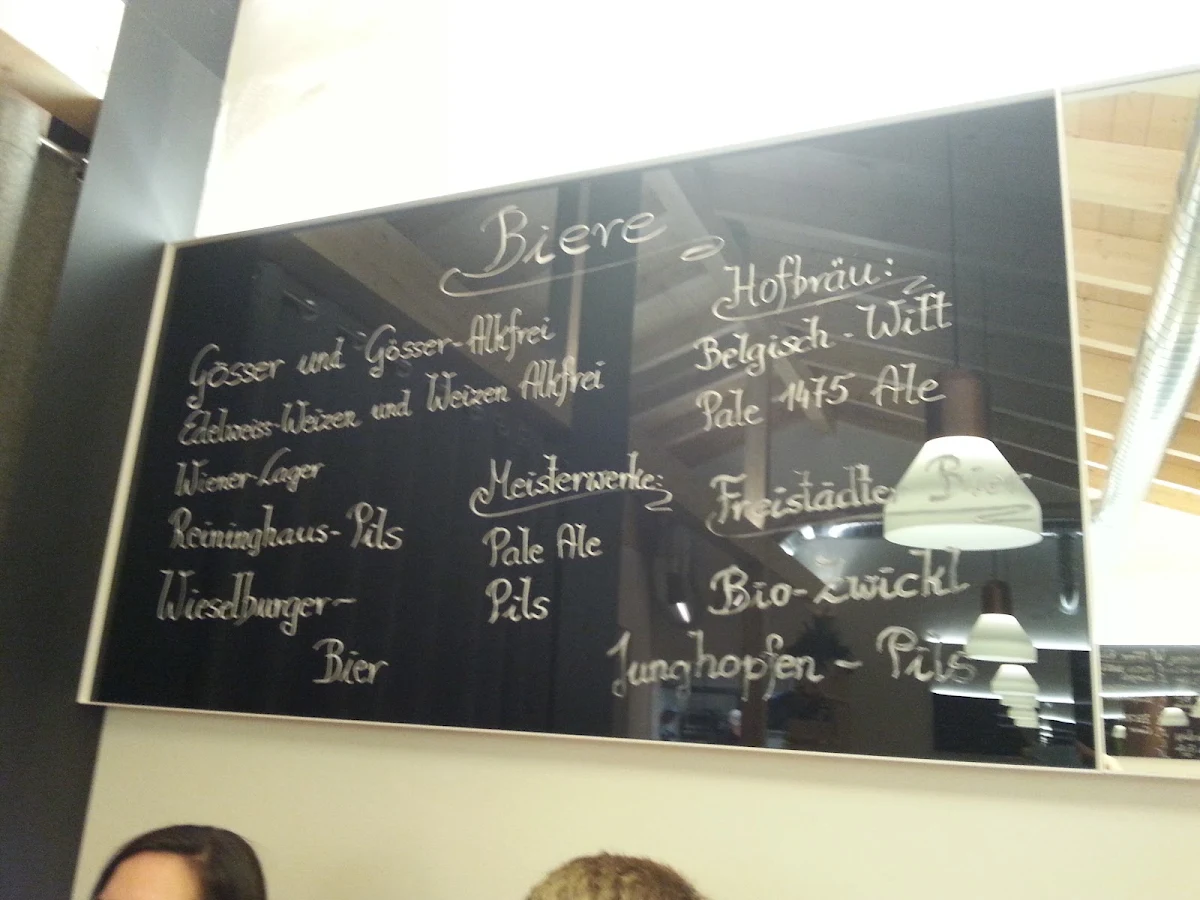 Biere
Gösser und Gösser-Alkfrei
Edelweiss-Weizen und Weizen Alkfrei
Wiener-Lager
Reininghaus-Pils
Wieselburger-
Bier
Meisterwerke:
Pale Ale
Pils
Hofbräu:
Belgisch-Witt
Pale 1475 Ale
Freistädter Bier
Bio-Zwickl
Junghopfen - Pils